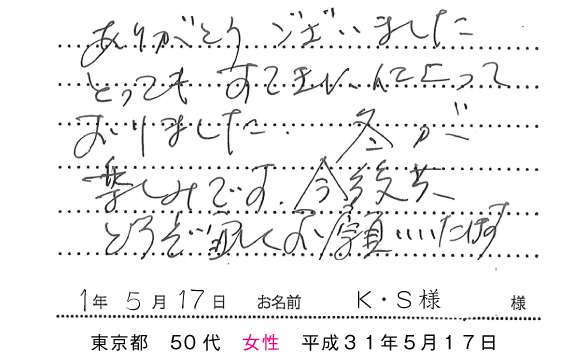 ありがとう ございました
とっても すてきに 仕上って
おりました. 冬が
楽しみです. 今後共
どうぞ宜しくお願いいたします
1年 5月 17日 お名前 K・S様 様
東京都 50代 女性 平成31年5月17日